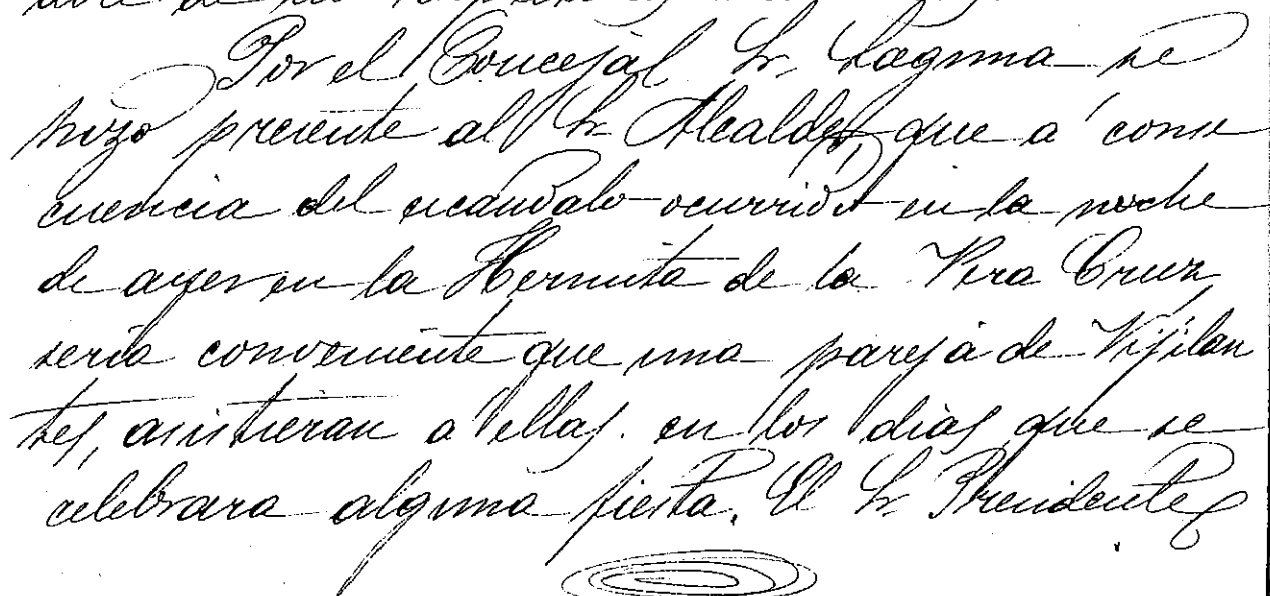 Por el Concejal Sr. Laguna se
hizo presente al Sr Alcalde, que a conse
cuencia del escandalo ocurrido en la noche
de ayer en la Hermita de la Vera Cruz
seria conveniente que una pareja de Vijilan
tes, asistieran a ellas. en los dias que se
celebrara alguna fiesta. El Sr. Presidente